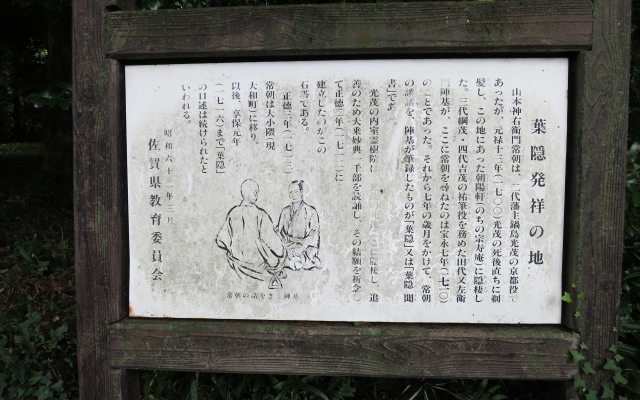 葉隠発祥の地
山本神右衛門常朝は、二代藩主鍋島光茂の京都役で
あったが、元禄十三年(一七〇〇)光茂の死後直ちに剃
髪し、この地にあった朝陽軒(のちの宗寿庵)に隠棲し
た。三代綱茂、四代吉茂の祐筆役を務めた田代又左衛
門陣基が、ここに常朝を尋ねたのは宝永七年(一七一〇)
のことであった。それから七年の歳月をかけて、常朝
の談話を、陣基が筆録したものが「葉隠」又は「葉隠聞
書」である。
光茂の内室霊樹院は、 隠棲し、追
善のため大乗妙典一千部を読誦し、その結願を祈念し
て正徳三年(一七一三)に
建立したのがこの
石塔である。
正徳三年(一七一三)
常朝は大小隈(現
大和町)に移り、
以後、享保元年
(一七一六)まで「葉隠」
の口述は続けられたと
いわれる。
昭和六十 年三月
佐賀県教育委員会
常朝の話をきく陣基